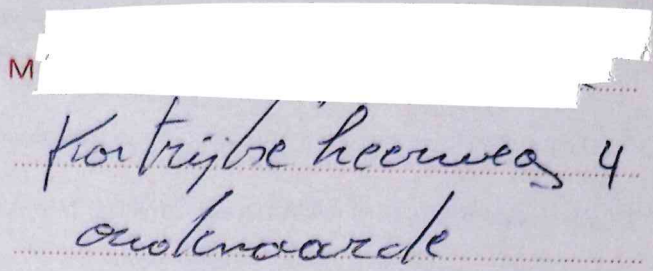 M
Kortrijkse heerweg 4
oudenaarde